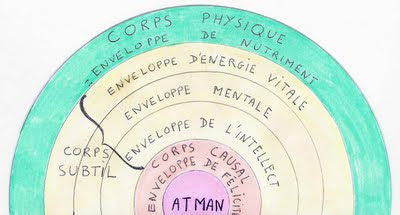 CORPS PHYSIQUE
= ENVELOPPE DE NUTRIMENT
ENVELOPPE D'ENERGIE VITALE
ENVELOPPE MENTALE
ENVELOPPE DE L'INTELLECT
CORPS
SUBTIL
CORPS CAUSAL
ENVELOPPE DE FELICIT
ATMAN